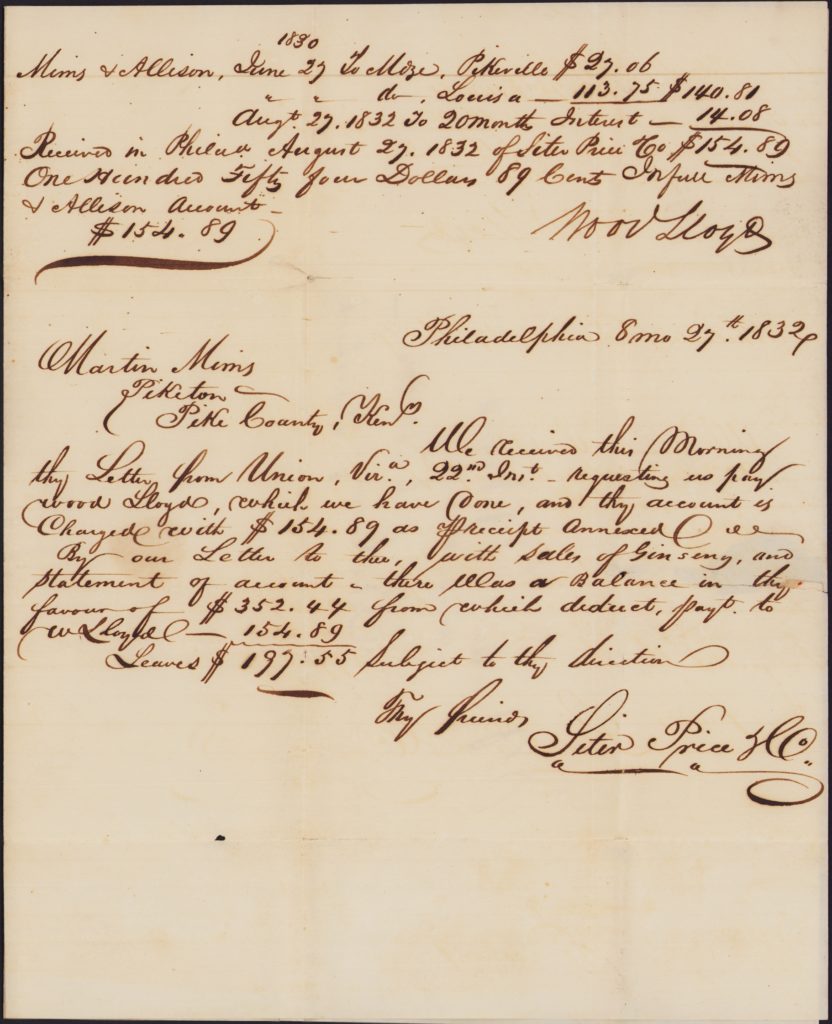 1830
Mims & Allison, June 27 To Mdze, Pikeville $27.06
" " do, Louisa — 113.75 $140.81
Augt. 27. 1832 To 20 month Interest — 14.08
Received in Philad August 27. 1832 of Siter Price & Co $154.89
One Hundred Fifty four Dollars 89 Cents In full Mims
& Allison Account —
$154.89
Wood Lloyd
Philadelphia 8 mo 27th. 1832
Martin Mims
Piketon
Pike County, Keny.
We received this Morning
thy Letter from Union, Vira, 22nd Inst. - requesting us pay
Wood Lloyd, which we have Done, and thy account is
Charged with $154.89 as receipt Annexed
By our Letter to thee, with Sales of Ginseng, and
Statement of account - there Was a Balance in thy
favour of $352.44 from which deduct, payt. to
W Lloyd — 154.89
Leaves $197.55 Subject to thy direction
Thy friends
Siter Price & Co.